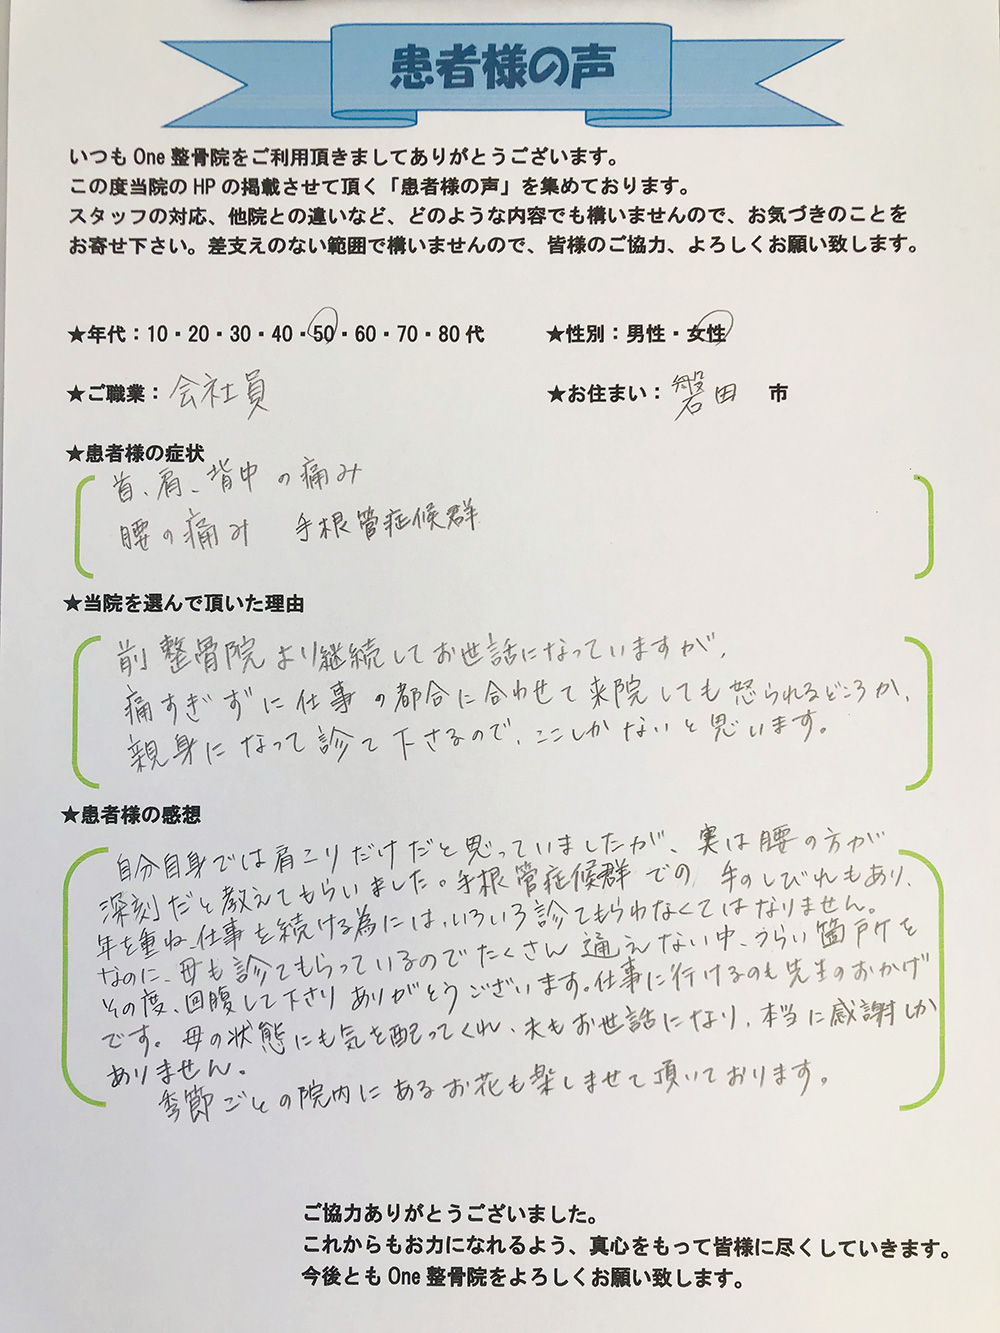 患者様の声
いつもOne整骨院をご利用頂きましてありがとうございます。
この度当院のHPの掲載させて頂く「患者様の声」を集めております。
スタッフの対応、他院との違いなど、どのような内容でも構いませんので、お気づきのことを
お寄せ下さい。差支えのない範囲で構いませんので、皆様のご協力、よろしくお願い致します。
★年代：10・20・30・40・50・60・70・80代 ★性別：男性・女性
★ご職業：会社員 ★お住まい：磐田 市
★患者様の症状
首、肩、背中の痛み
腰の痛み 手根管症候群
★当院を選んで頂いた理由
前整骨院より継続してお世話になっていますが、
痛すぎずに仕事の都合に合わせて来院しても怒られるどころか、
親身になって診て下さるので、ここしかないと思います。
★患者様の感想
自分自身では肩こりだけだと思っていましたが、実は腰の方が
深刻だと教えてもらいました。手根管症候群での手のしびれもあり、
年を重ね、仕事を続ける為には、いろいろ診てもらわなくてはなりません。
なのに、母も診てもらっているのでたくさん通えない中、うらい箇所を
その度、回腹して下さりありがとうございます。仕事に行けるのも先生のおかげ
です。母の状態にも気を配ってくれ、夫もお世話になり、本当に感謝しか
ありません。
季節ごとの院内にあるお花も楽しませて頂いております。
ご協力ありがとうございました。
これからもお力になれるよう、真心をもって皆様に尽くしていきます。
今後ともOne整骨院をよろしくお願い致します。